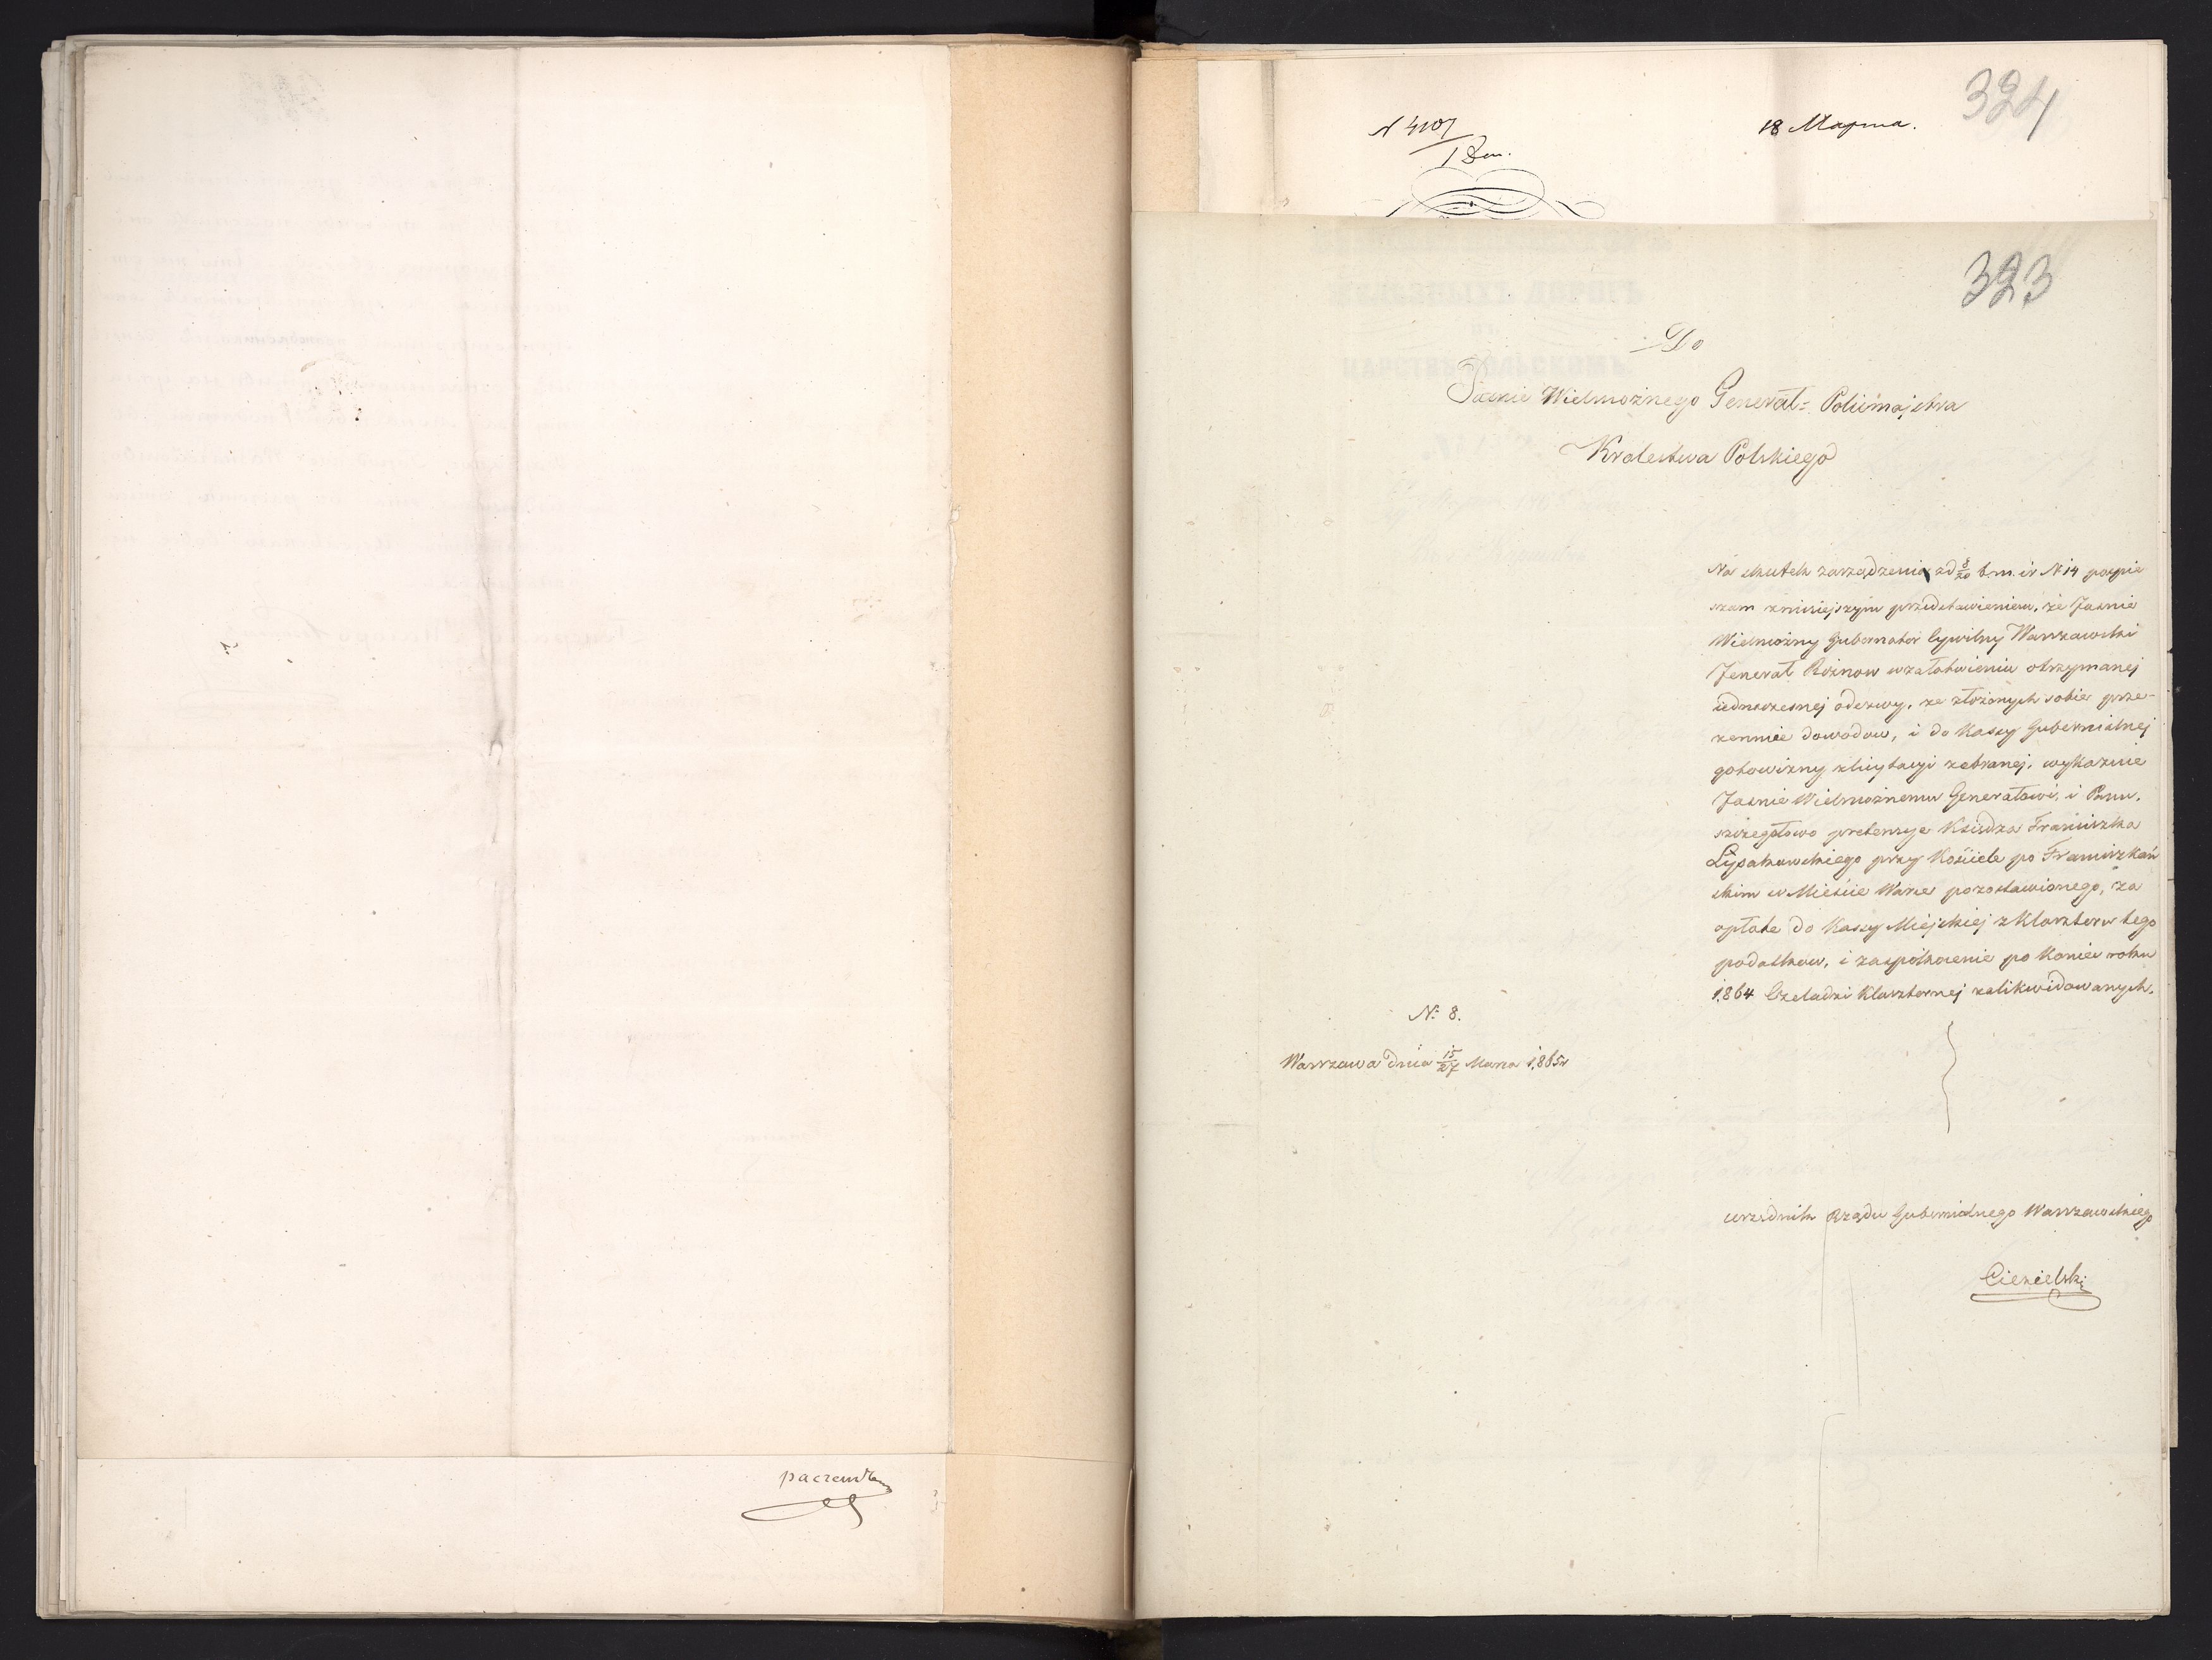 324
N 4107
18 Марта.
323
Do
Jaśnie Wielmożnego Generał= Policmajstra
Królestwa Polskiego
Na skutek zarządzenia od 8/20 b.m. i r. N 14 pośpie
szam z niniejszym przedstawieniem, że Jaśnie
Wielmożny Gubernator Cywilny Warszawski
Jenerał Rożnow w załatwieniu otrzymanej
jednoczesnej odezwy, ze złożonych sobie prze-
zemnie dowodów, i do Kassy Gubernialnej
gotowizny z licytacyi zebranej, wykazuie
Jaśnie Wielmożnemu Generałowi, i Panu,
szczegółowo pretensye Księdza Franciszka
Łysakowskiego przy Kościele po Franciszkań
skim w Mieście Warce pozostawionego, za
opłatę do Kassy Miejskiej z Klasztoru tego
podatków, i zaspokoienie po koniec roku
1864 Czeladzi Klasztornej zalikwidowanych.
N: 8.
Warszawa dnia 15/27 Marca 1865r
urzędnik Rządu Gubernialnego Warszawskiego
Ciesielski